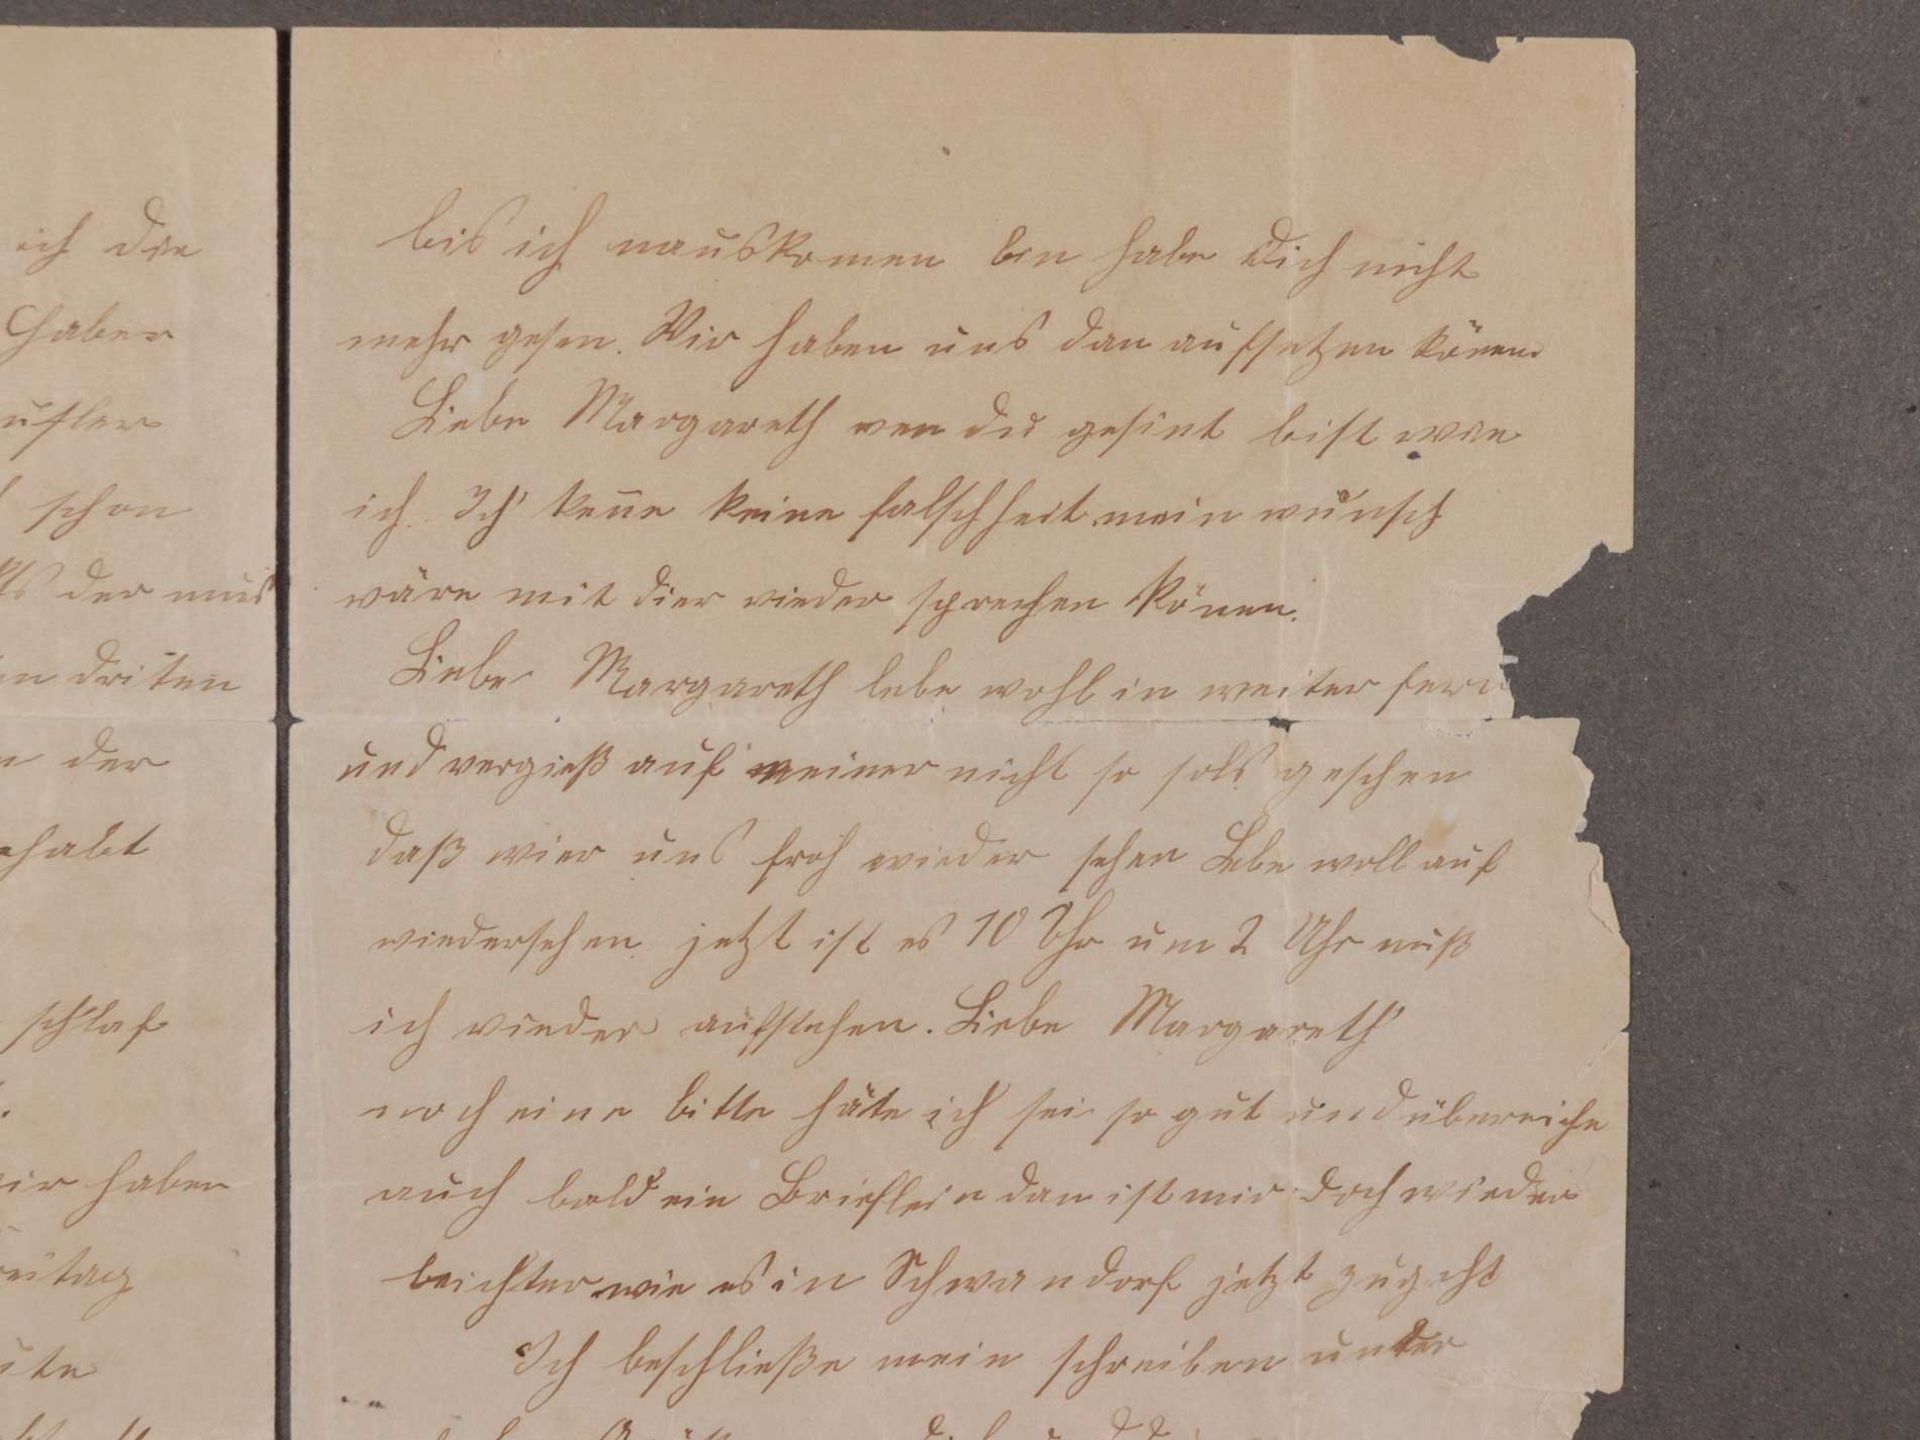 ich die
haben
schon
der mus
driten
der
schlaf
wir haben
bis ich nauskomen bin habe Dich nicht
mehr gesen. Wir haben uns dan aufsetzen könen
Liebe Margareth wen du gesint bist wie
ich. Ich kene keine falschheit mein wunsch
wäre mit dier wieder sprechen könen.
Liebe Margareth lebe wohl in weiter fern
und vergieß auf meiner nicht so sols geschen
daß wier uns froh wieder sehen Lebe woll auf
wiedersehen. jetzt ist es 10 Uhr um 2 Uhr muß
ich wieder aufstehen. Liebe Margareth
noch eine bitte häte ich sei so gut und übereiche
auch bald ein Brieflein dan ist mir doch wieder
leichter wie es in Schwandorf jetzt zugeht
Ich beschließe mein schreiben unter